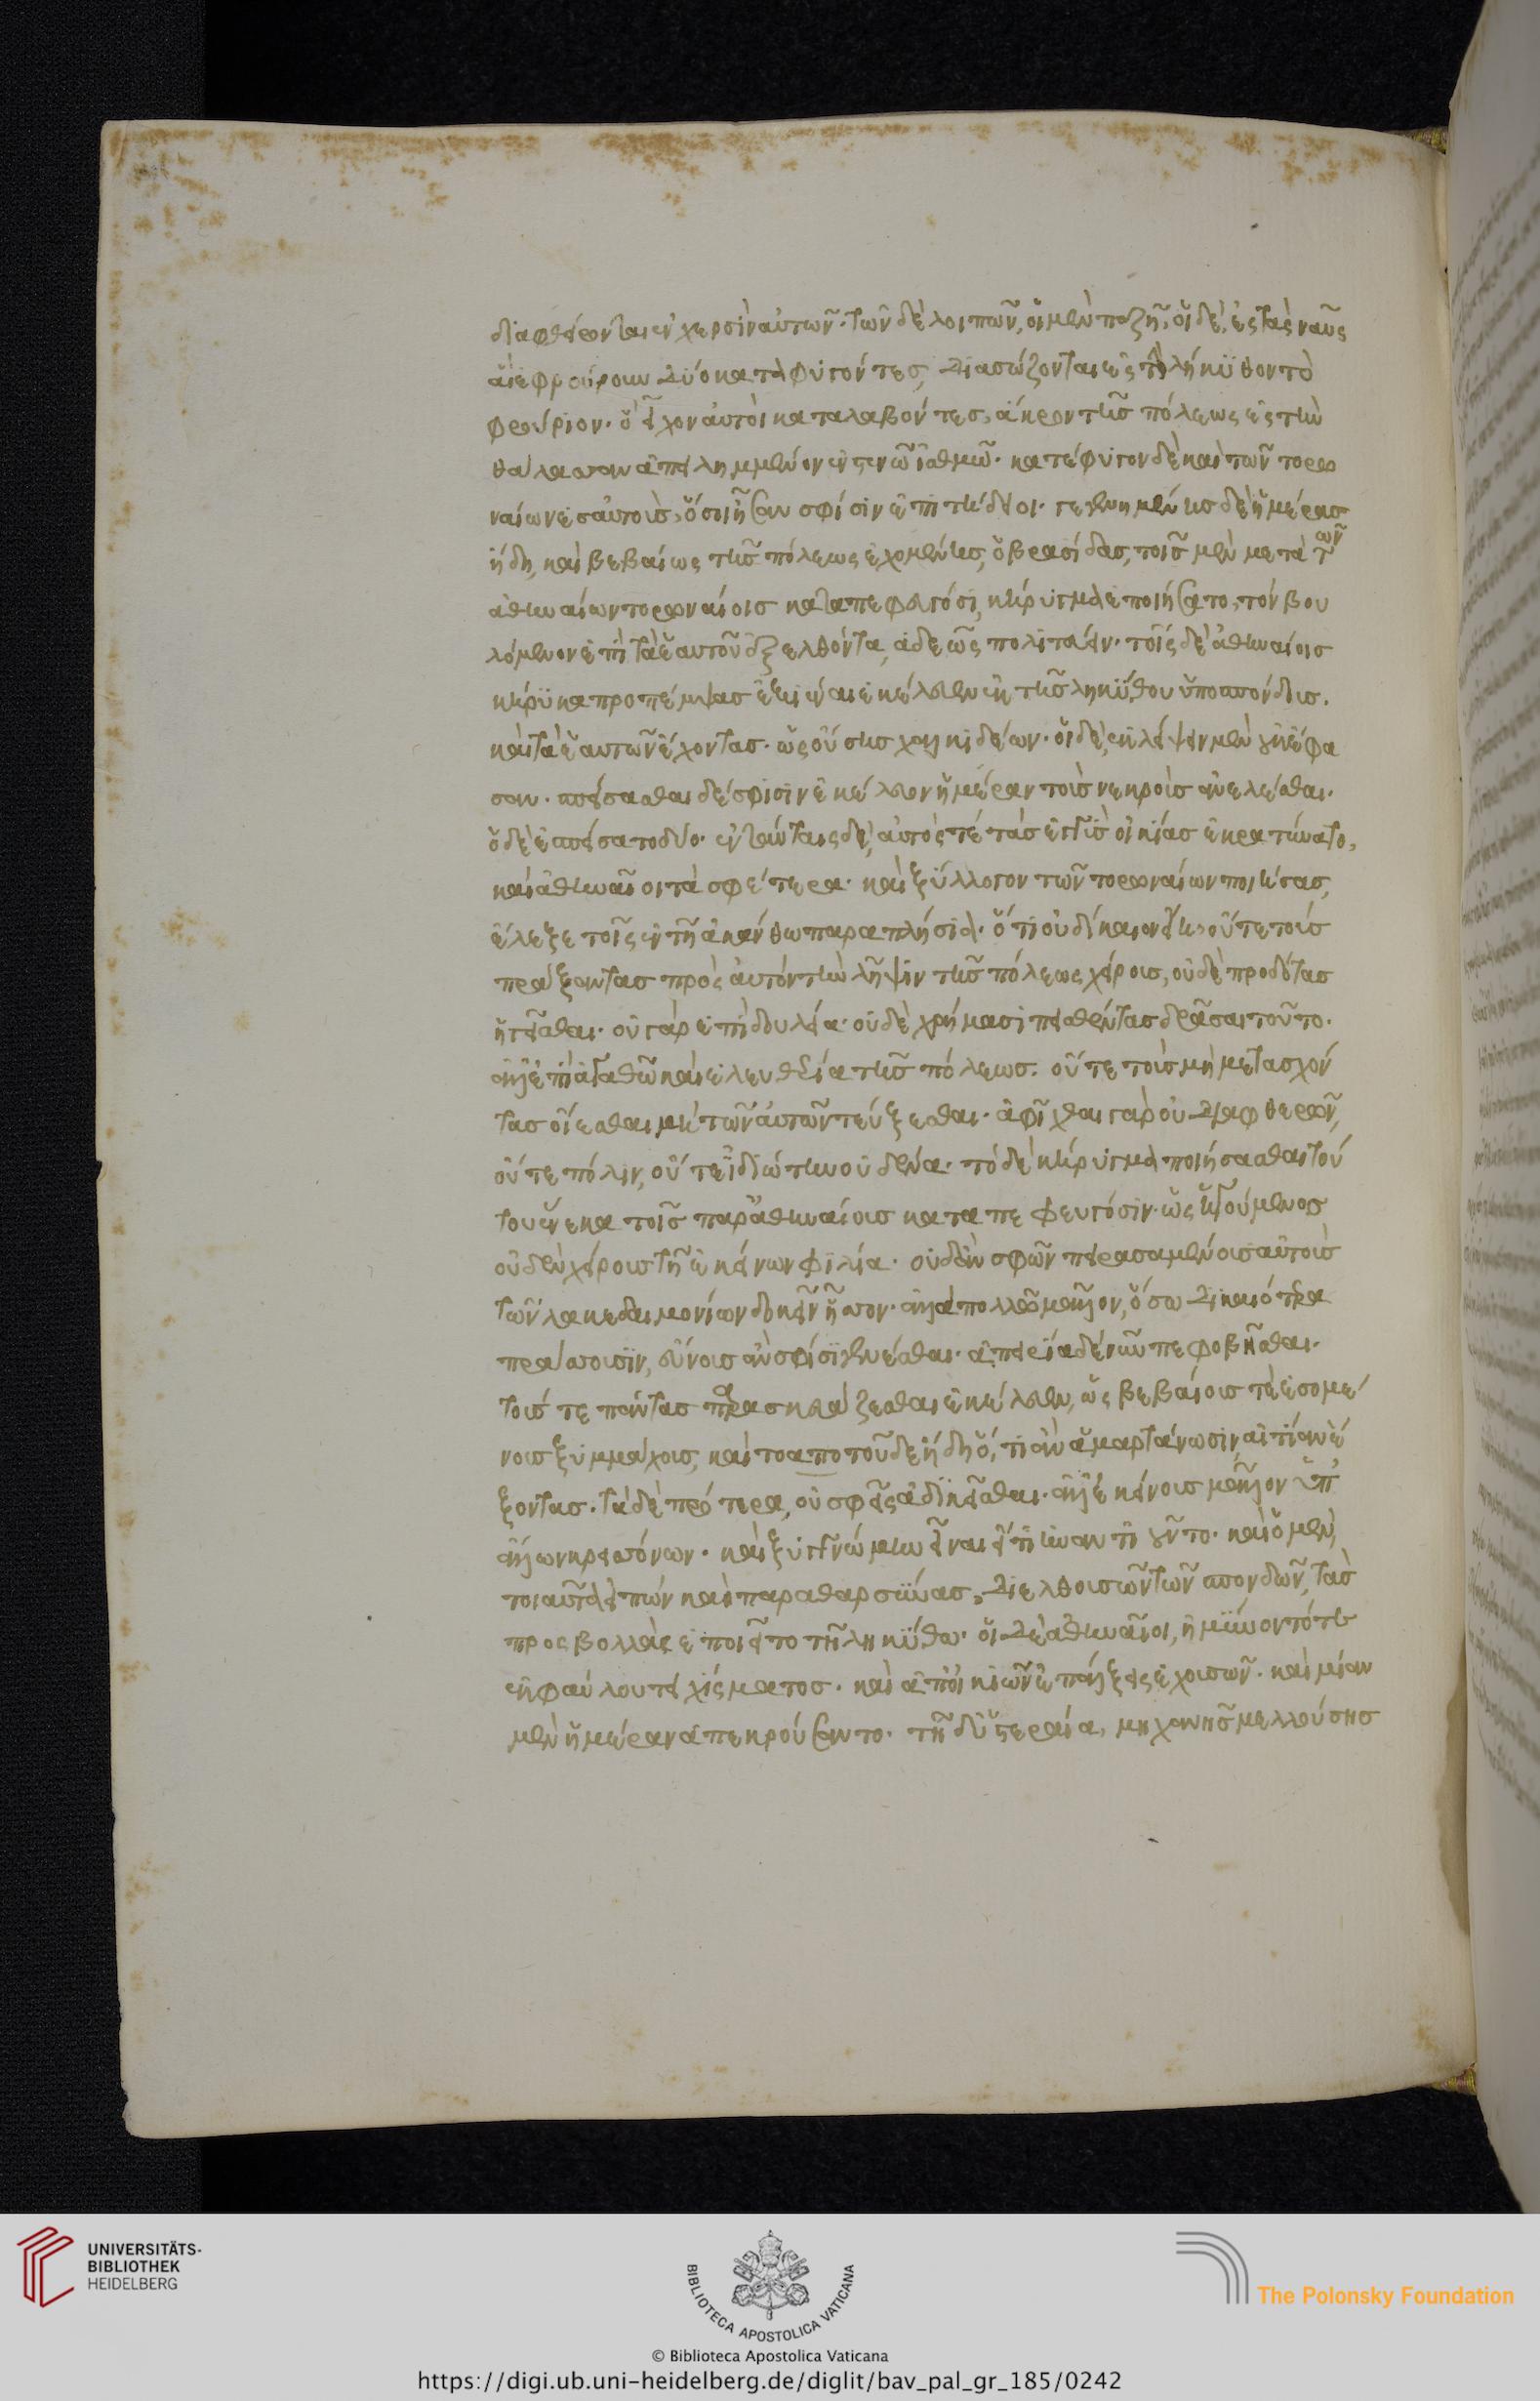 διαφθείρονται ἐν χερσὶν αὐτῶν· τῶν δὲ λοιπῶν, οἱ μὲν πεζῆ, οἱ δὲ, ἐς τὰς ναῦς
αἳ ἐφρούρουν δύο καταφυγόντες, διασώζονται ἐς τὴν λήκυθον τὸ
φρούριον· ὃ εἶχον αὐτοὶ καταλαβόντες, ἄκρον τῆς πόλεως ἐς τὴν
θάλασσαν ἀπειλημμένον ἐν στενῶ ἰσθμῶ· κατέφυγον δὲ καὶ τῶν τορω
ναίων ἐς αὐτοὺς, ὅσοι ἦσαν σφίσιν ἐπιτήδειοι· γεγενημένης δὲ ἡμέρας
ἤδη, καὶ βεβαίως τῆς πόλεως ἐχομένης, ὁ βρασίδας, τοῖς μὲν μετὰ τῶν
ἀθηναίων τορωναίοις καταπεφευγόσι, κήρυγμα ἐποιήσατο, τὸν βου
λόμενον ἐπὶ τὰ ἑαυτοῦ ἐξελθόντα, ἀδεῶς πολιτεύειν· τοῖς δὲ ἀθηναίοις
κήρυκα προπέμψας ἐξιέναι ἐκέλευεν ἐκ τῆς ληκύθου ὑποσπόνδους.
καὶ τὰ ἑαυτῶν ἔχοντας· ὡς οὔσης χαλκιδέων· οἱ δὲ, ἐκλείψειν μὲν οὐκ ἔφα
σαν· σπείσασθαι δὲ σφίσιν ἐκέλευον ἡμέραν τοὺς νεκροὺς ἀνελέσθαι.
ὁ δὲ ἐσπείσατο δύο· ἐν ταύταις δὲ, αὐτός τε τὰς ἐγγὺς οἰκίας ἐκρατύνατο,
καὶ ἀθηναῖοι τὰ σφέτερα· καὶ ξύλλογον τῶν τορωναίων ποιήσας,
ἔλεξε τοῖς ἐν τῆ ἀκάνθω παραπλήσια· ὅτι οὐ δίκαιον εἴη, οὔτε τοὺς
πράξαντας πρὸς αὐτὸν τὴν λῆψιν τῆς πόλεως χείρους, οὐδὲ προδότας
ἡγεῖσθαι· οὐ γὰρ ἐπὶ δουλεία· οὐδὲ χρήμασι πεισθέντας δρᾶσαι τοῦτο.
ἀλλ' ἐπὶ ἀγαθῶ καὶ ἐλευθερία τῆς πόλεως. οὔτε τοὺς μὴ μετασχόν
τας οἴεσθαι μὴ τῶν αὐτῶν τεύξεσθαι· ἀφῖχθαι γὰρ οὐ διαφθερῶν,
οὔτε πόλιν, οὔτε ἰδιώτην οὐδένα· τὸ δὲ κήρυγμα ποιήσασθαι τού
του ἕνεκα τοῖς παρ' ἀθηναίους καταπεφευγόσιν· ὡς ἡγούμενος
οὐδὲν χείρους τῆ ἐκείνων φιλία· οὐδ' ἂν σφῶν πειρασαμένους αὐτοὺς
τῶν λακεδαιμονίων δοκεῖν ἧσσον· ἀλλὰ πολλῶ μᾶλλον, ὅσω δικαιότερα
πράσσουσιν, εὔνους ἂν σφίσι γενέσθαι· ἀπειρία δὲ νῦν πεφοβῆσθαι.
τούς τε πάντας παρασκευάζεσθαι ἐκέλευεν, ὡς βεβαίους τὲ ἐσομέ
νους ξυμμάχους, καὶ τὸ ἀπὸ τοῦδε ἤδη ὅ,τι ἂν ἁμαρτάνωσιν, αἰτίαν ἕ
ξοντας. τὰ δὲ πρότερα, οὐ σφεῖς ἀδικεῖσθαι· ἀλλ' ἐκείνους μᾶλλον ὑπ'
ἄλλων κρεισσόνων· καὶ ξυγγνώμην εἶναι εἴ τι ἠναντιοῦντο· καὶ ὁ μὲν
τοιαῦτα εἰπὼν καὶ παραθαρσύνας, διελθουσῶν τῶν σπονδῶν, τὰς
προςβολὰς ἐποιεῖτο τῆ ληκύθω· οἱ δὲ ἀθηναῖοι, ἠμύνοντό τε
ἐκ φαύλου τειχίσματος· καὶ ἀπ' οἰκιῶν ἐπάλξεις ἐχουσῶν· καὶ μίαν
μὲν ἡμέραν ἀπεκρούσαντο· τῆ δ' ὑστεραία, μηχανῆς μελλούσης
UNIVERSITÄTS-
BIBLIOTHEK
HEIDELBERG
BIBLIOTECA APOSTOLICA VATICANA
The Polonsky Foundation
© Biblioteca Apostolica Vaticana
https://digi.ub.uni-heidelberg.de/diglit/bav_pal_gr_185/0242